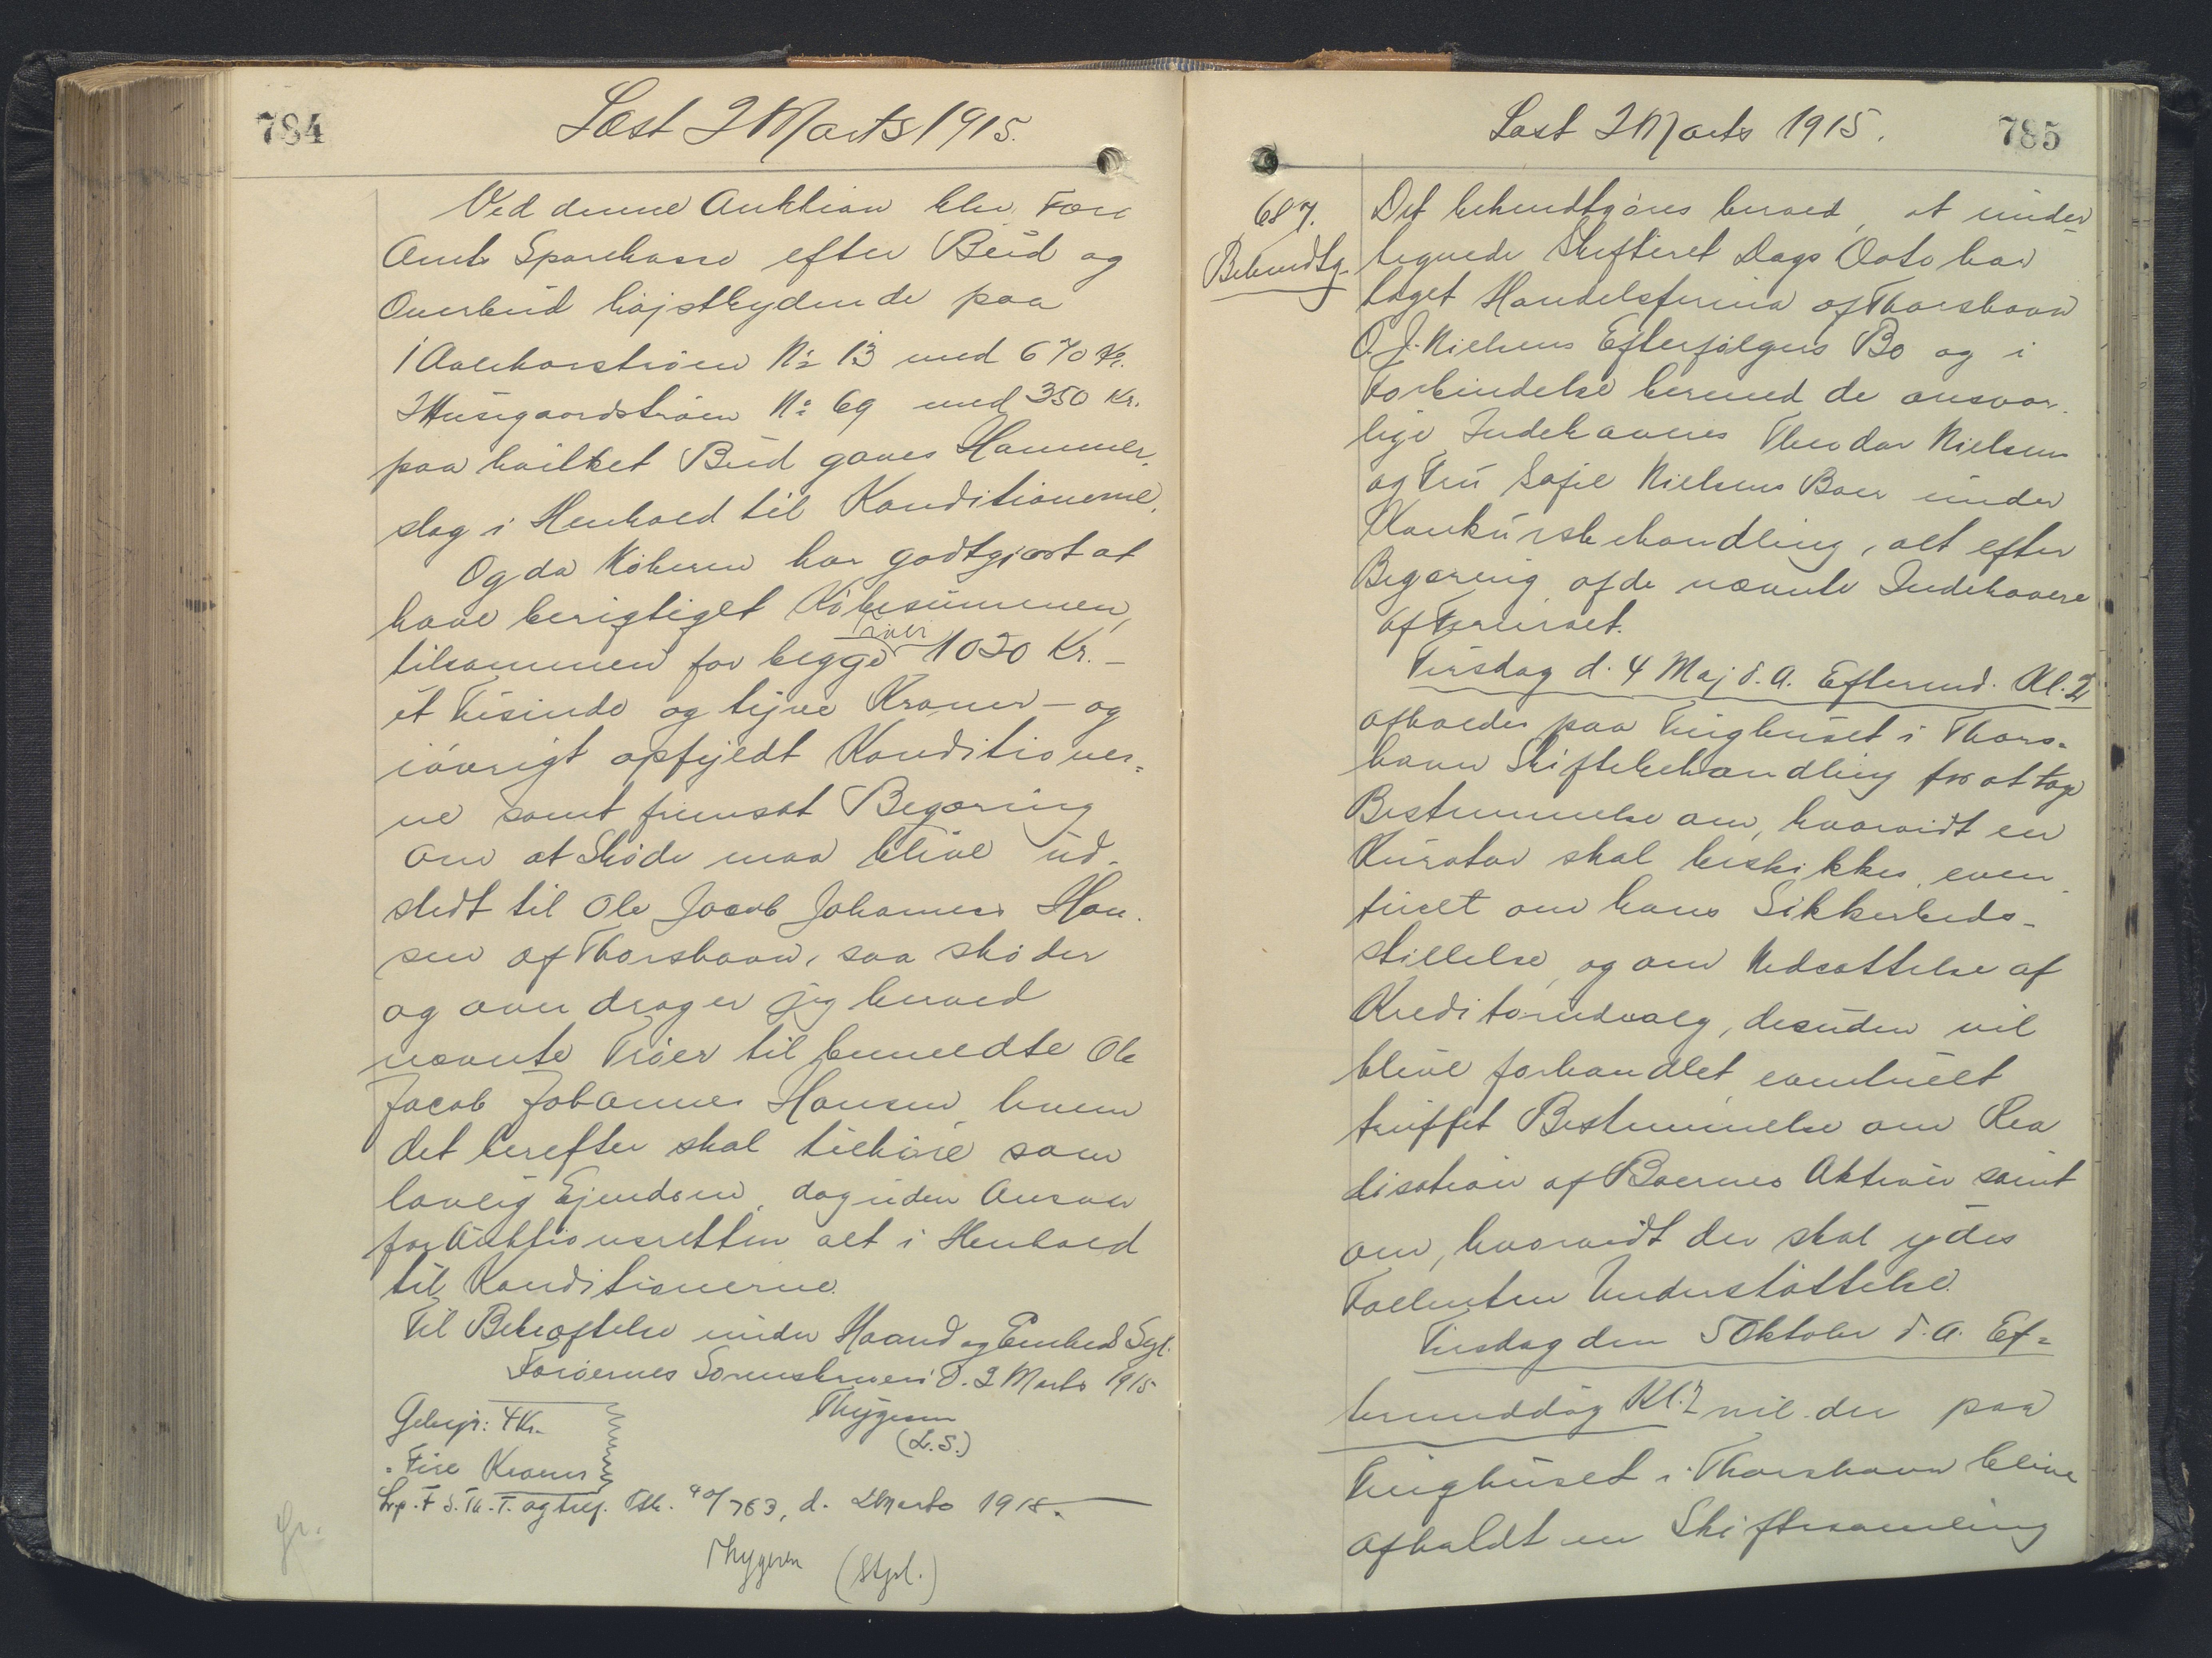 784
Læst 2 Marts 1915.
Ved denne Auktion blev Færø
Amts Sparekasse efter Bud og
Overbud højstbydende paa
1 Aalekærstrøen № 13 med 670 Kr.
2 Husegaardstrøen № 69 med 350 Kr.
paa hvilket Bud gaves Hammer-
slag i Henhold til Konditionerne.
Og da Køberen har godtgjort at
have berigtiget Købesummen,
tilsammen for begge Trøer 1020 Kr. –
et Tusinde og tyve Kroner – og
iøvrigt opfyldt Konditioner-
ne samt fremsat Begæring
om at Skøde maa blive ud-
stedt til Ole Jacob Johannes Han-
sen af Thorshavn, saa skøder
og overdrager jeg herved
nævnte Trøer til bemeldte Ole
Jacob Johannes Hansen hvem
det herefter skal tilhøre som
lovlig Ejendom, dog uden Ansvar
for Auktionsretten alt i Henhold
til Konditionerne.
Til Bekræftelse under Haand og Embeds Segl.
Færøernes Sorenskriveri d. 2 Marts 1915
Thygesen
(L.S.)
Gebyr: 4 Kr.
Fire Kroner
og tilf. 40/763, d. 2 Marts 1915.
Thygesen (Stpl.)
785
Læst 2 Marts 1915.
687.
Bekendtg.
Det bekendtgøres herved, at under-
tegnede Skifteret Dags Dato har
taget Handelsfirma af Thorshavn
O. J. Nielsens Efterfølgers Bo og i
Forbindelse hermed de ansvar-
lige Indehaveres Theodor Nielsens
og Fru Sofie Nielsens Boer under
Konkursbehandling, alt efter
Begæring af de nævnte Indehavere
af Firmaet.
Tirsdag d. 4 Maj d. A. Eftermd. Kl. 2
afholdes paa Tinghuset i Thors-
havn Skiftebehandling for at tage
Bestemmelse om, hvorvidt en
Kurator skal beskikkes, even-
tuelt om hans Sikkerheds-
stillelse, og om Nedsættelse af
Kreditorudvalg, desuden vil
blive forhandlet, eventuelt
truffet Bestemmelse om Rea
lisation af Boernes Aktiver samt
om, hvorvidt der skal ydes
Fallenten Understøttelse.
Tirsdag den 5 Oktober d. A. Ef-
termiddag Kl. 2 vil der paa
Tinghuset i Thorshavn blive
afholdt en Skiftesamling